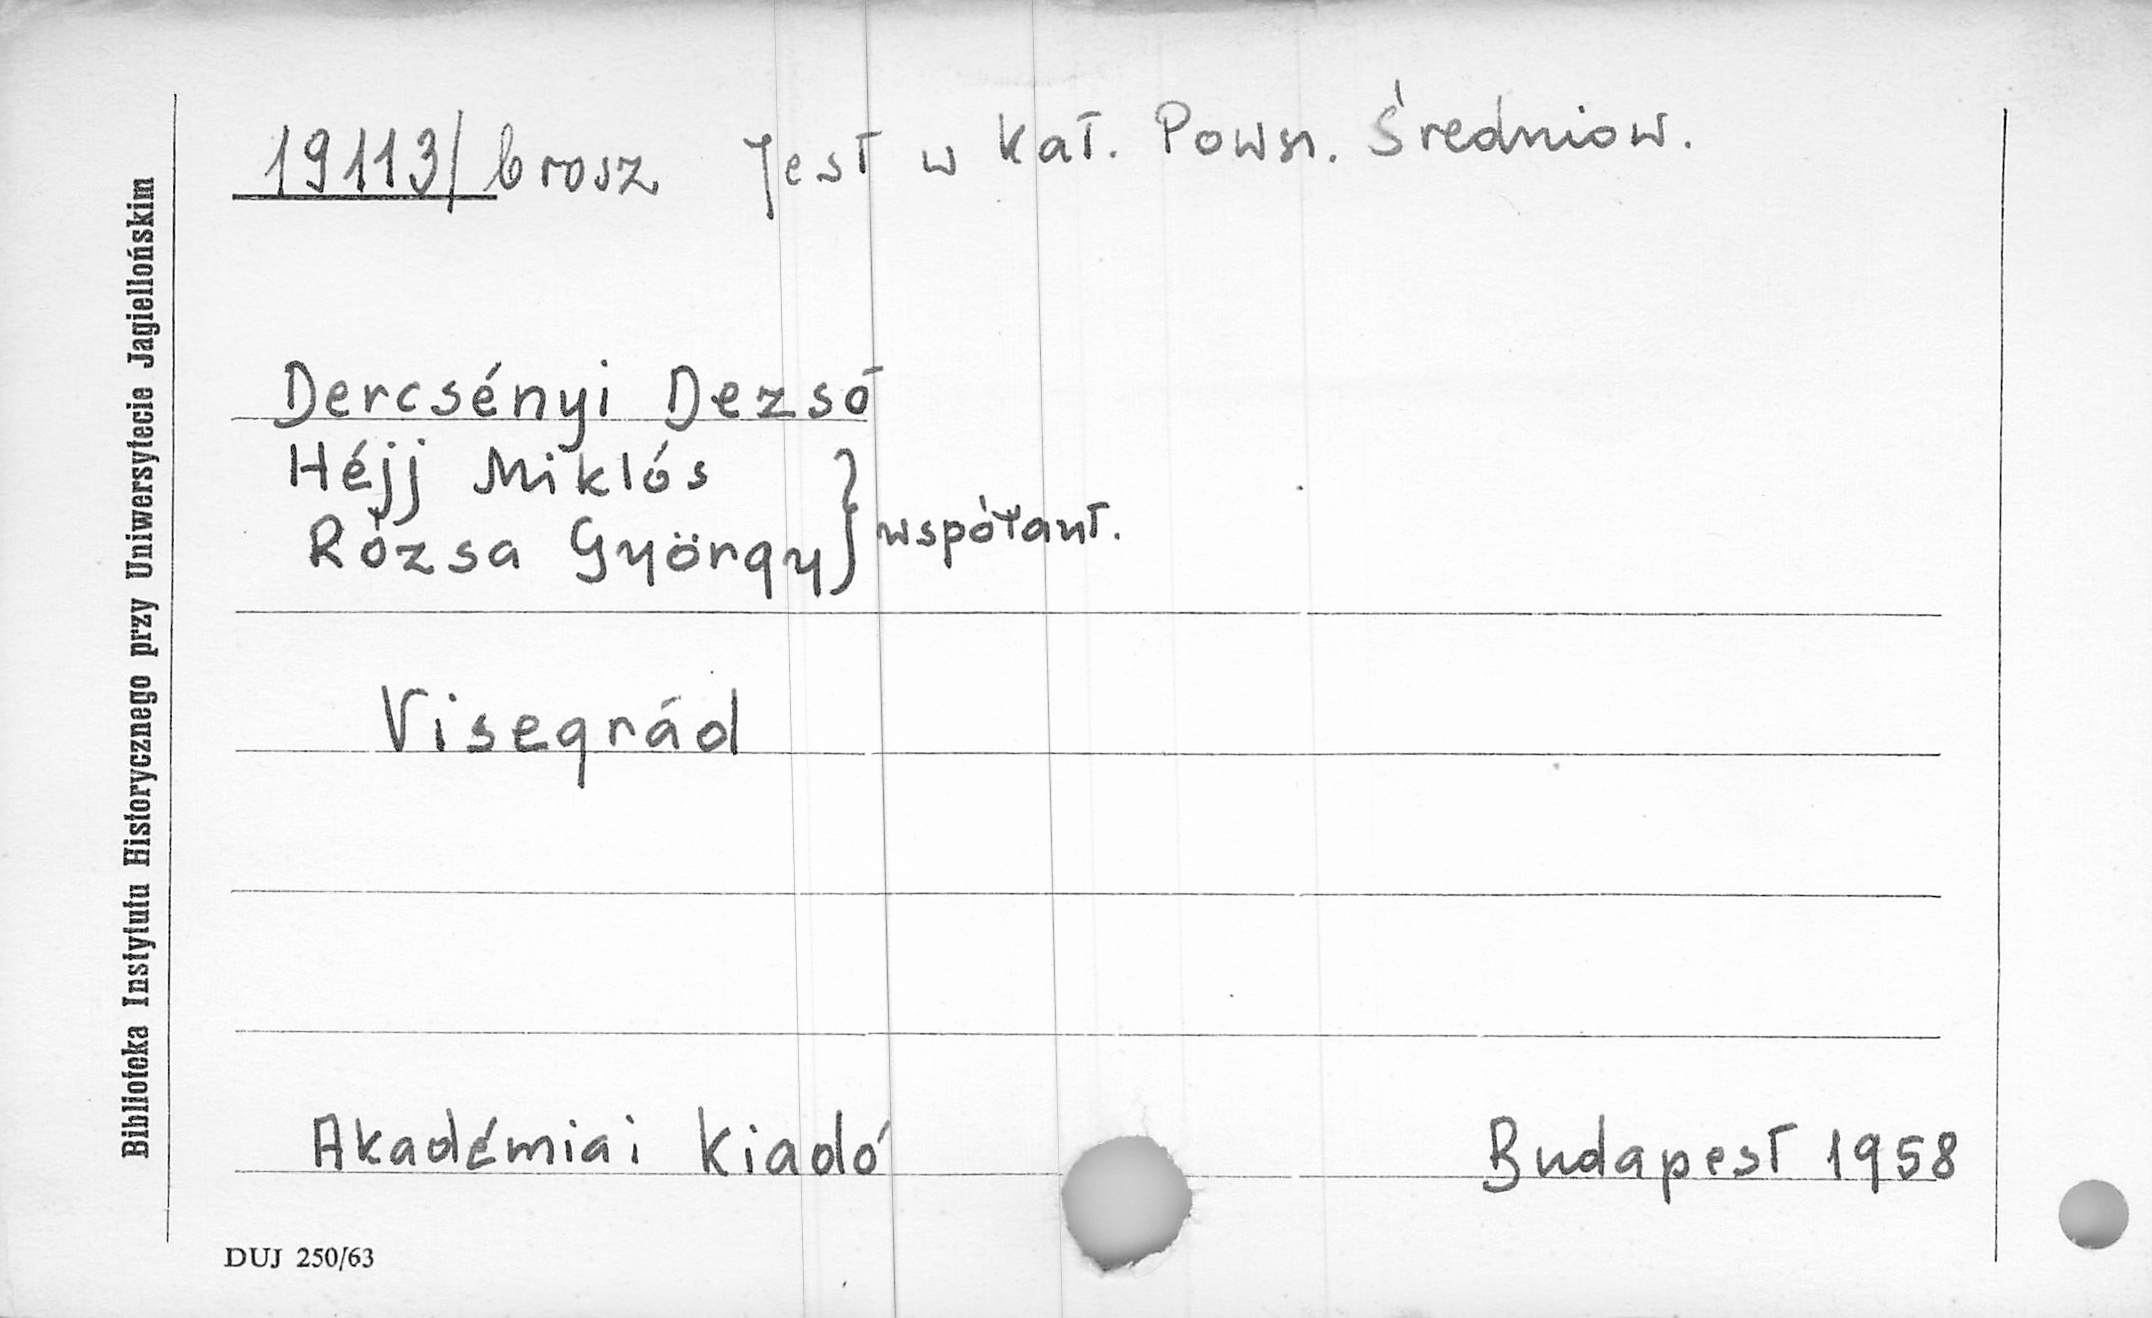 19113/brosz Jest w Kat. Powsz. Średniow.
Dercsényi Dezsó
Héjj Miklós
Rózsa György } współaut.
Visegrád
Akadémiai Kiadó Budapest 1958
DUJ 250/63
Biblioteka Instytutu Historycznego przy Uniwersytecie Jagiellońskim